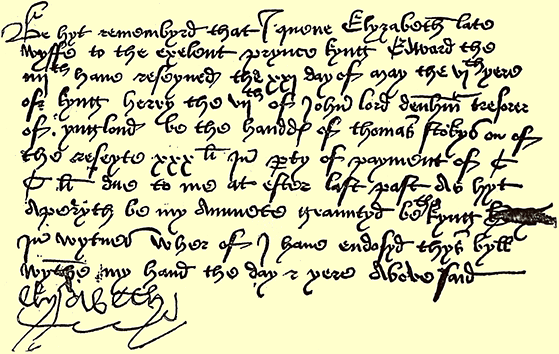 Be hyt remembyrd that I quene Elyzabeth late
wyffe to the exelent prynce kyng Edward the
iiijth have reseyved the xxj day of may the vjth yere
of kyng herry the vijth of John lord denhm tresorer
of ynglond be the handds of thomas stokys on of
the reseyte xxx li in pty of payment of C
C li due to me at ester last past as hyt
aperyth be my annuete grauntyd be the kyng
In wytnes wher of I have endosyd thys byll
wythe my hand the day & yere above said
Elysabeth